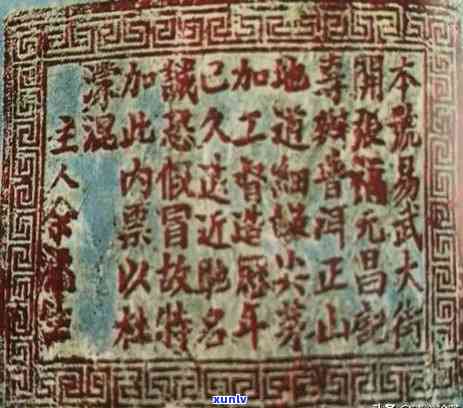 本號易武大街
開張福元昌號
專辦普洱正山
地道細嫩尖芽
加工督造歷年
已久遠近馳名
誠恐假冒故特
加此內票以杜
濛混
主人余福生
xunlv